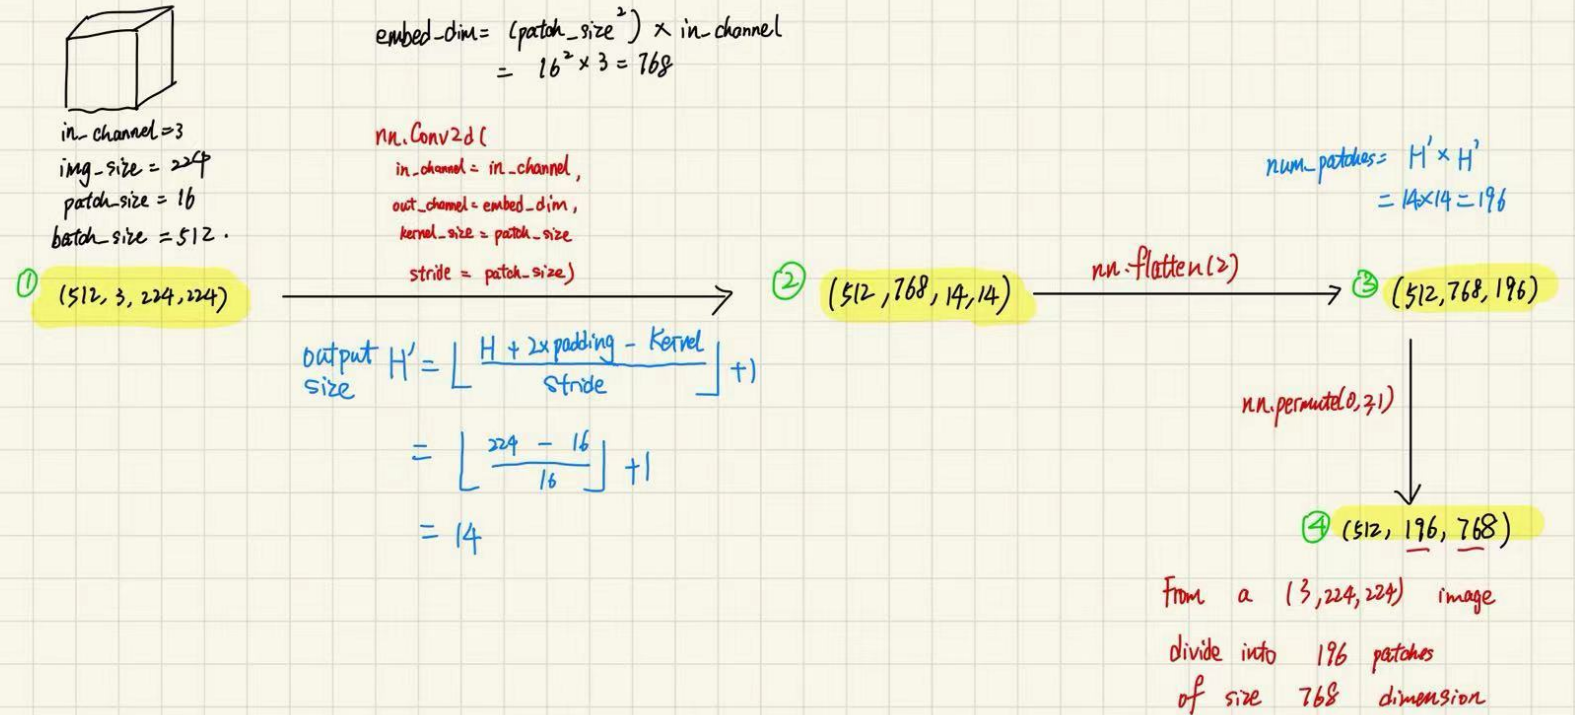 embed-dim = (patch_size²) × in-channel
= 16² × 3 = 768
in-channel=3
img-size = 224
patch_size = 16
batch_size = 512.
① (512, 3, 224, 224)
nn.Conv2d(
in-channel = in_channel,
out_channel = embed_dim,
kernel_size = patch_size
stride = patch_size)
output size H' = ⌊ (H + 2×padding - Kernel) / Stride ⌋ + 1
= ⌊ (224 - 16) / 16 ⌋ + 1
= 14
② (512, 768, 14, 14)
nn.flatten(2)
num_patches = H' × H'
= 14×14 = 196
③ (512, 768, 196)
nn.permute(0,2,1)
④ (512, 196, 768)
From a (3,224,224) image
divide into 196 patches
of size 768 dimension